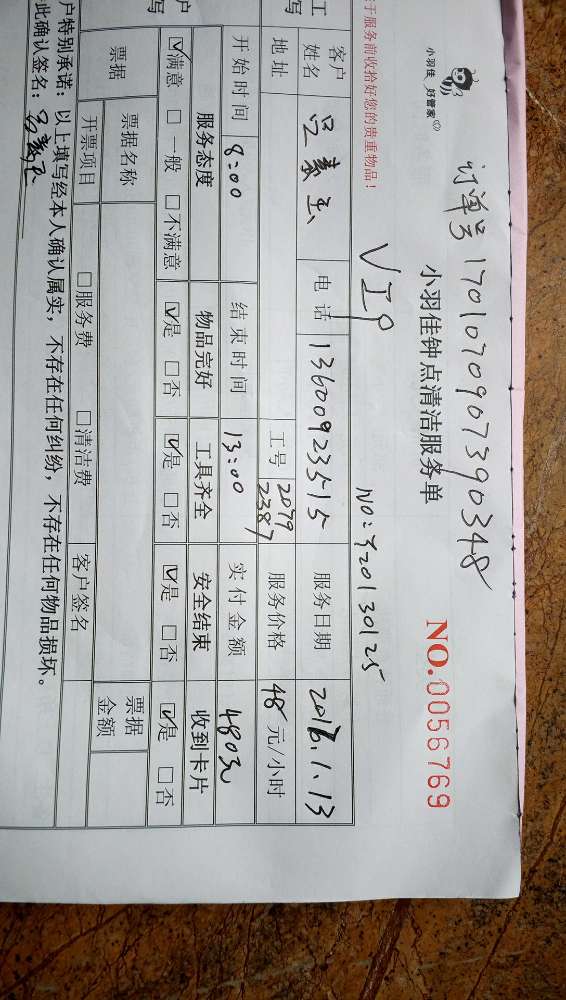 小羽佳 好管家
订单号 1701070907390348
小羽佳钟点清洁服务单
NO.0056769
于服务前收拾好您的贵重物品!
VIP
NO:Y20130125
客户姓名
电话 13600923515
服务日期 2017.1.13
地址
工号 2079 2387
服务价格 48 元/小时
开始时间 8:00
结束时间 13:00
实付金额 480元
服务态度 物品完好 工具齐全 安全结束 收到卡片
☑满意 □一般 □不满意 ☑是 □否 ☑是 □否 ☑是 □否 ☑是 □否
票据 票据名称 票据金额
开票项目 □服务费 □清洁费 客户签名
户特别承诺:以上填写经本人确认属实,不存在任何纠纷,不存在任何物品损坏。
此确认签名: